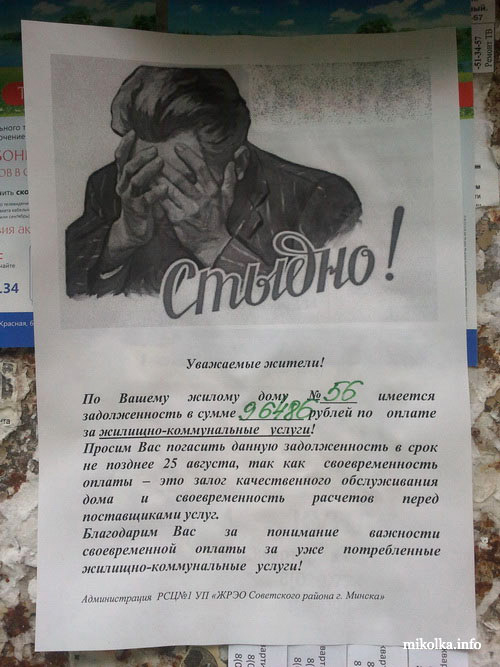 ный.
-67
-51-34-57
Ремонт ТВ
Стыдно!
.34
Красная, 6
Уважаемые жители!
По Вашему жилому дому №56 имеется
задолженность в сумме 96486 рублей по оплате
за жилищно-коммунальные услуги!
Просим Вас погасить данную задолженность в срок
не позднее 25 августа, так как своевременность
оплаты – это залог качественного обслуживания
дома и своевременность расчетов перед
поставщиками услуг.
Благодарим Вас за понимание важности
своевременной оплаты за уже потребленные
жилищно-коммунальные услуги!
Администрация РСЦ№1 УП «ЖРЭО Советского района г. Минска»
mikolka.info